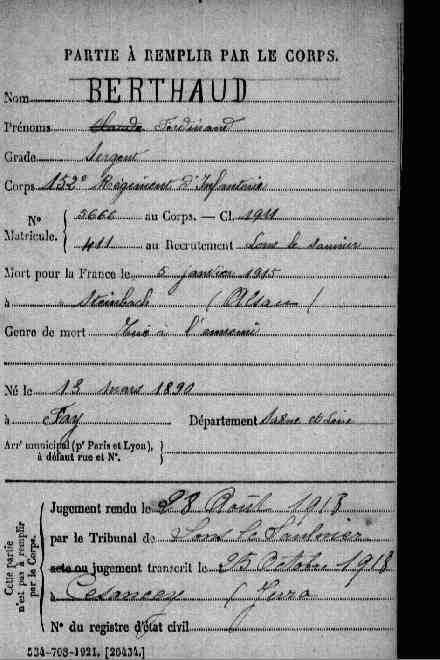 PARTIE À REMPLIR PAR LE CORPS.
Nom BERTHAUD
Prénoms Claude Ferdinand
Grade Sergent
Corps 152e Régiment d'Infanterie
N° Matricule. { 5666 au Corps. — Cl. 1911
411 au Recrutement Lons le Saunier
Mort pour la France le 5 janvier 1915
à Steinbach (Alsace)
Genre de mort Tué à l'ennemi
Né le 13 mars 1890
à Fay Département Saône et Loire
Arrt municipal (pr Paris et Lyon), à défaut rue et N°. }
Cette partie n'est pas à remplir par le Corps.
Jugement rendu le 28 Août 1918
par le Tribunal de Lons le Saulnier
acte ou jugement transcrit le 25 Octobre 1918
à Cesancey (Jura
N° du registre d'état civil
534-708-1921. [26434.]